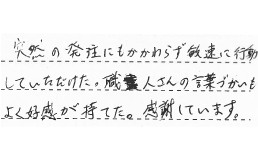 突然の発注にもかかわらず敏速に行動
していただけた。職人さんの言葉づかいも
よく好感が持てた。感謝しています。